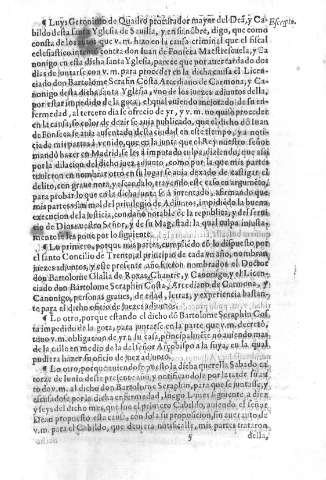 ¶ Luys Geronimo de procurador mayor del Deã, y Ca- Escripto.
bildo desta Yglesia de Seuilla, y en su nõbre, digo, que como
consta de los que v. m. hizo en la causa criminal que el fiscal
contra don Iuan de Fonseca Maestrescuela, y Ca-
nonigo en esta dicha santa Yglesia, parece que por auer tardado dos
dias de juntarse con v. m. para proceder en la dicha causa el Licen-
ciado don Bartolome Serafin Costa, Arcediano de Carmona, y Ca-
nonigo desta dicha santa Yglesia, vno de los juezes adjuntos della,
por estar impedido de la gota, el qual auiendo mejorado de su en-
fermedad, al tercero dia se ofrecio de yr, y v. m. no quiso proceder
en la causa, so color de dezir se auia publicado, que el dicho dõ Iuan
de Fonseca se auia ausentado desta ciudad en este tiempo, y a noti-
cia de mis partes à venido, que en la junta que el Rey nuestro señor
mandò hazer en Madrid, se les à imputado culpa, diziendo, que assi
por la dilacion del dicho juez adjunto, como por la que mis partes
tuuieron en nombrar otro en su lugar se auia dexado de castigar el
delito, con graue nota, y escandalo, trayendo este caso en argumẽto,
para prouar lo que en la dicha junta se à intentado, afirmando que
mis partes vsan mal del priuilegio de Adjuntos, impidiẽdo la buena
execucion de la Iusticia, con daño notable de la republica, y del serui-
cio de Dios nuestro Señor, y de su Magestad: la qual culpa injusta-
mente se les pone por lo siguiente.
¶ Lo primero, porque mis partes, cumpliẽdo cõ lo dispuesto por
el santo Concilio de Trento, al principio de cada vn año, nombran
juezes adjuntos, y este presente año fueron nombrados el Doctor
don Bartolome Olalla de Rojas, Chantre, y Canonigo, y el Licen-
ciado don Bartolome Seraphin Costa, Arcediano de Carmona, y
Canonigo, personas graues, de edad, letras, y experiencia bastan-
te para el dicho oficio de juezes adjuntos.
¶ Lo otro, porque estando el dicho dõ Bartolome Seraphin Cos-
ta impedido de la gota, para juntarse en la parte, que v. m. decretò,
tuuo v. m. obligacion de yr a su casa, principalmente no auiendo mas
de la calle en medio de la del señor Arçobispo a la suya, en la qual
pudiera hazer su oficio de juez adjunto.
¶ Lo otro, porque auiendo propuesto la dicha querella Sabado ca-
torze de Iunio deste presente año, y notificandose por la tarde
do v. m. al dicho don Bartolome Seraphin, para que se juntasse, y
escusadose por la dicha enfermedad, luego Lunes siguiente a diez
y seys del dicho mes, que fue el primero Cabildo, auiendo el señor
Dean propuesto esta causa, con sola su proposicion, sin auto de
v. m. para el Cabildo, que deuiera notificalle, mis partes trataron
della,